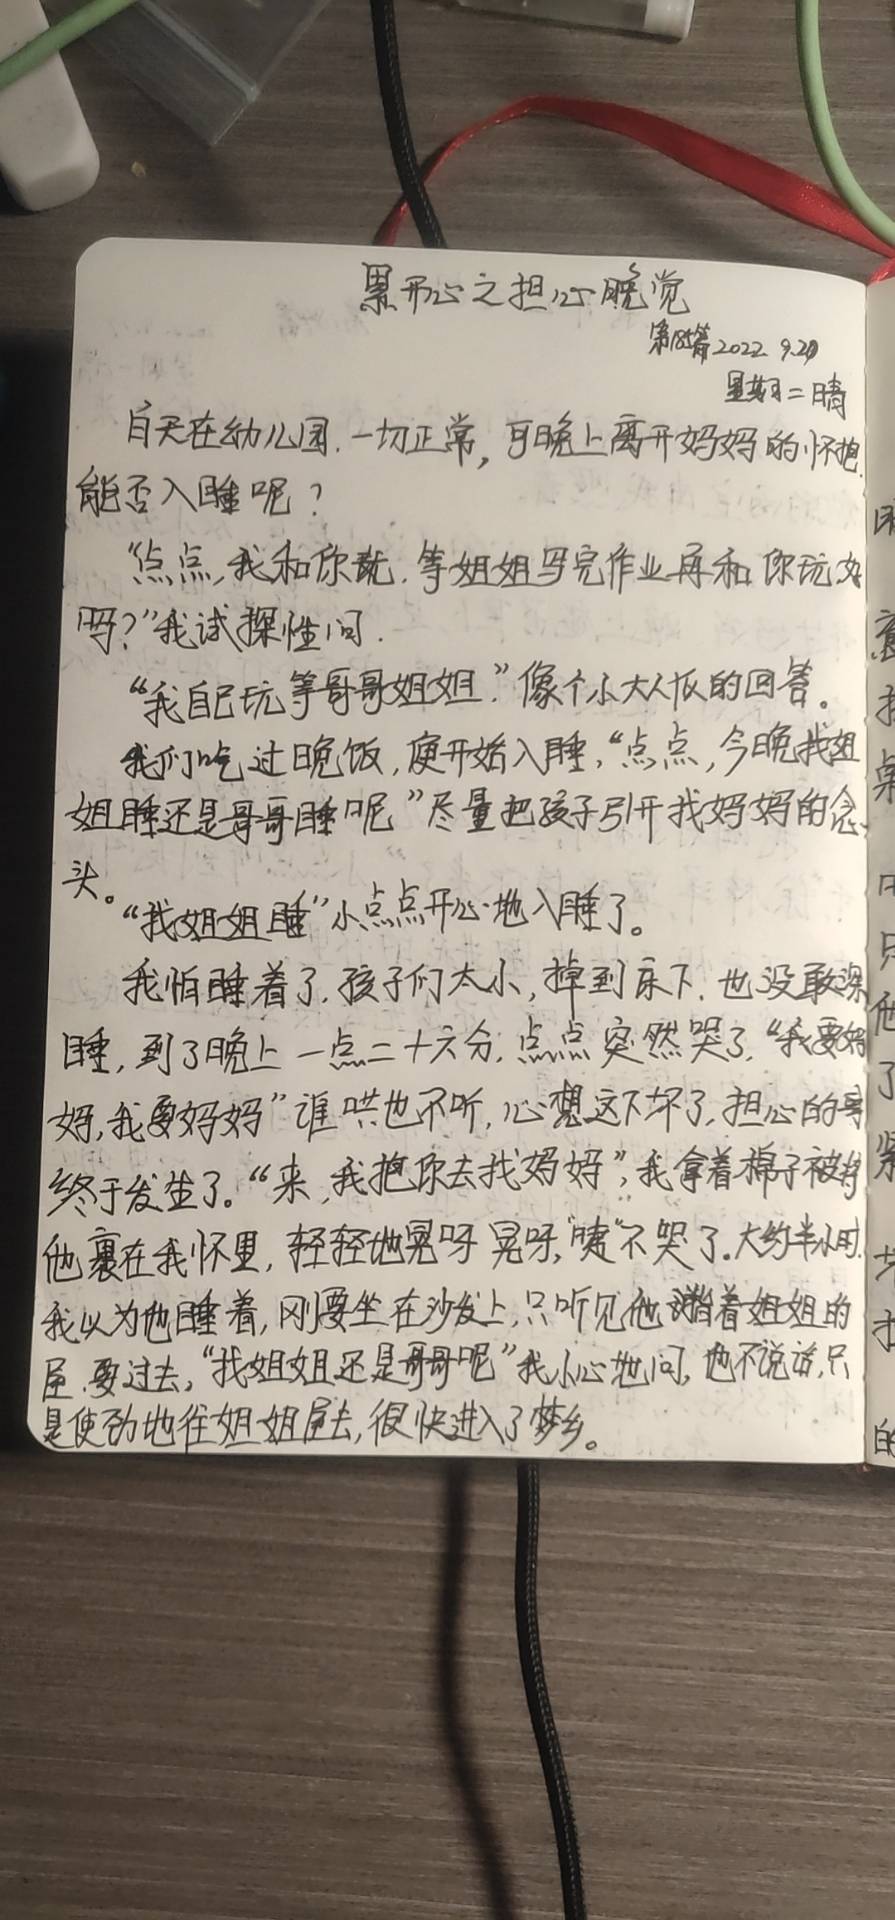 累开心之担心晚觉
第185篇2022.9.20
星期二晴
白天在幼儿园.一切正常,可晚上离开妈妈的怀抱.
能否入睡呢?
“点点,我和你玩.等姐姐写完作业再和你玩好
吗?”我试探性问.
“我自己玩等哥哥姐姐.”像个小大人似的回答。
我们吃过晚饭,便开始入睡,“点点,今晚找姐
姐睡还是哥哥睡呢”尽量把孩子引开找妈妈的念
头。
“找姐姐睡”小点点开心地入睡了。
我怕睡着了,孩子们太小,掉到床下.也没敢深
睡,到了晚上一点二十六分,点点突然哭了,“我要妈
妈,我要妈妈”谁哄也不听,心想这下坏了,担心的事
终于发生了。“来,我抱你去找妈妈”,我拿着棉子被将
他裹在我怀里,轻轻地晃呀晃呀,“咦”不哭了.大约半小时.
我以为他睡着,刚要坐在沙发上,只听见他指着姐姐的
屋.要过去,“找姐姐还是哥哥呢”我小心地问,也不说话,只
是使劲地往姐姐屋去,很快进入了梦乡。